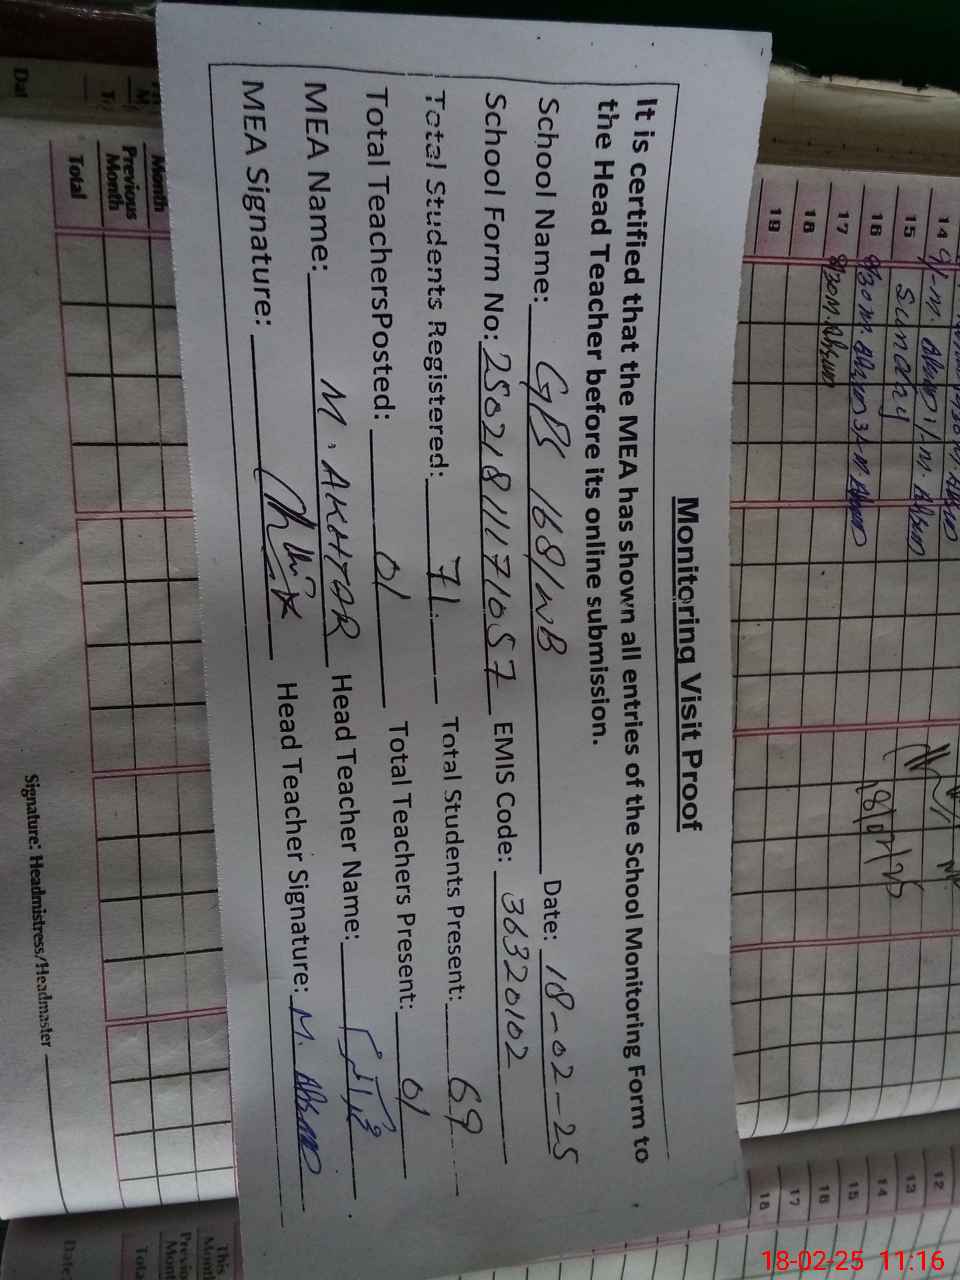 Monitoring Visit Proof
It is certified that the MEA has shown all entries of the School Monitoring Form to
the Head Teacher before its online submission.
School Name: GPS 168/WB Date: 18-02-25
School Form No: 25021811171057 EMIS Code: 36320102
Total Students Registered: 71 Total Students Present: 69
Total TeachersPosted: 01 Total Teachers Present: 01
MEA Name: M. AKHTAR Head Teacher Name:
MEA Signature: Head Teacher Signature: M.
14
15 Sunday
16
17
18
19
18/02/25
Month
Previous Month
Total
Signature: Headmistress/Headmaster
12
13
14
15
16
17
18
This Month
Total
Date
18-02-25 11:16